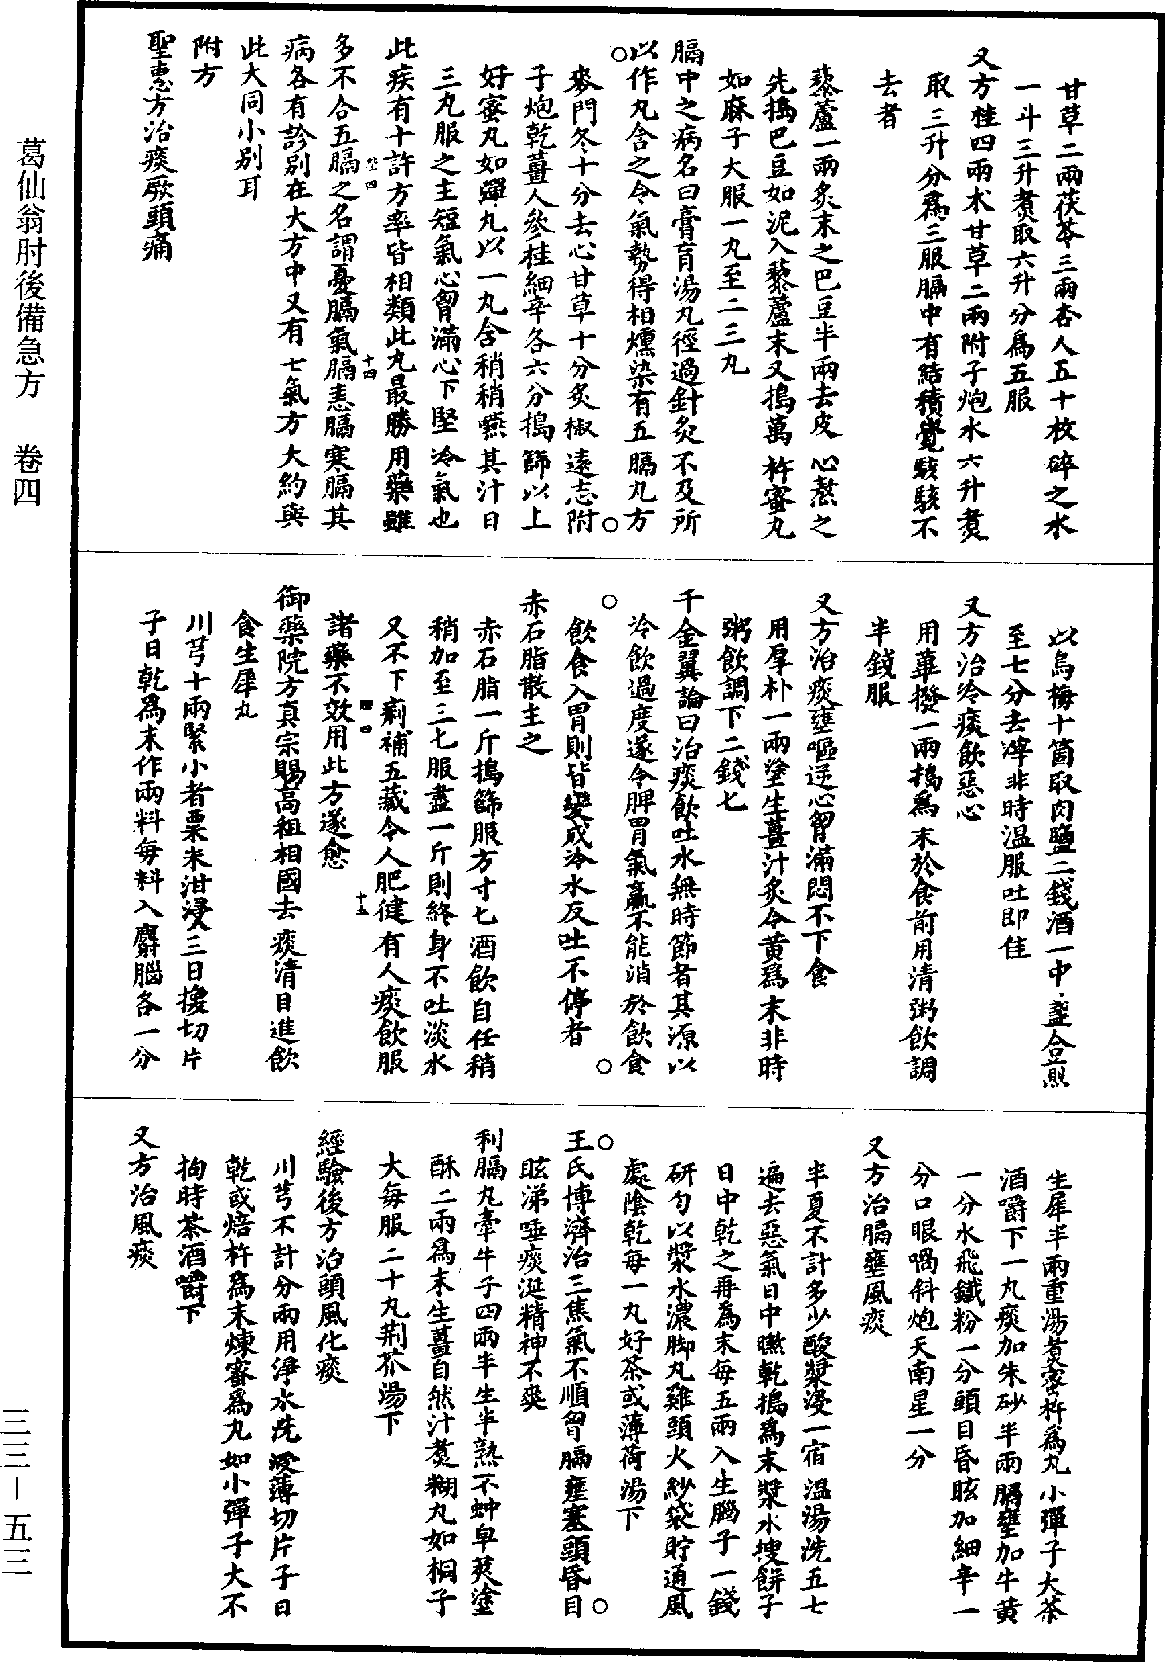 葛仙翁肘後備急方 卷四
甘草二兩茯苓三兩杏人五十枚碎之水
一斗三升煮取六升分爲五服
又方桂四兩术甘草二兩附子炮水六升煮
取三升分爲三服膈中有結積覺駭駭不
去者
藜蘆一兩炙末之巴豆半兩去皮心熬之
先搗巴豆如泥入藜蘆末又搗萬杵蜜丸
如麻子大服一丸至二三丸
膈中之病名曰膏肓湯丸徑過針灸不及所
以作丸含之令氣勢得相燻染有五膈丸方
麥門冬十分去心甘草十分炙椒遠志附
子炮乾薑人參桂細辛各六分搗篩以上
好蜜丸如彈丸以一丸含稍稍嚥其汁日
三丸服之主短氣心胷滿心下堅冷氣也
此疾有十許方率皆相類此丸最勝用藥雖
多不合五膈之名謂憂膈氣膈恚膈寒膈其
病各有診別在大方中又有七氣方大約與
此大同小別耳
附方
聖惠方治痰厥頭痛
以烏梅十箇取肉鹽二錢酒一中盞合煎
至七分去滓非時温服吐即佳
又方治冷痰飲惡心
用蓽撥一兩搗爲末於食前用清粥飲調
半錢服
又方治痰壅嘔逆心胷滿悶不下食
用厚朴一兩塗生薑汁炙令黄爲末非時
粥飲調下二錢匕
千金翼論曰治痰飲吐水無時節者其源以
冷飲過度遂令脾胃氣羸不能消於飲食
飲食入胃則皆變成冷水反吐不停者
赤石脂散主之
赤石脂一斤搗篩服方寸匕酒飲自任稍
稍加至三匕服盡一斤則終身不吐淡水
又不下痢補五藏令人肥健有人痰飲服
諸藥不效用此方遂愈
御藥院方真宗賜高祖相國去痰清目進飲
食生犀丸
川芎十兩緊小者粟米泔浸三日換切片
子日乾爲末作兩料每料入麝腦各一分
生犀半兩重湯煮蜜杵爲丸小彈子大茶
酒嚼下一丸痰加朱砂半兩膈壅加牛黄
一分水飛鐵粉一分頭目昏眩加細辛一
分口眼喎斜炮天南星一分
又方治膈壅風痰
半夏不計多少酸漿浸一宿温湯洗五七
遍去惡氣日中㬠乾搗爲末漿水搜餅子
日中乾之再爲末每五兩入生腦子一錢
研勻以漿水濃脚丸雞頭大紗袋貯通風
處陰乾每一丸好茶或薄荷湯下
王氏博濟治三焦氣不順胷膈壅塞頭昏目
眩涕唾痰涎精神不爽
利膈丸牽牛子四兩半生半熟不蚛皁莢塗
酥二兩爲末生薑自然汁煮糊丸如桐子
大每服二十丸荆芥湯下
經驗後方治頭風化痰
川芎不計分兩用淨水洗浸薄切片子日
乾或焙杵爲末煉蜜爲丸如小彈子大不
拘時茶酒嚼下
又方治風痰
三三—五三